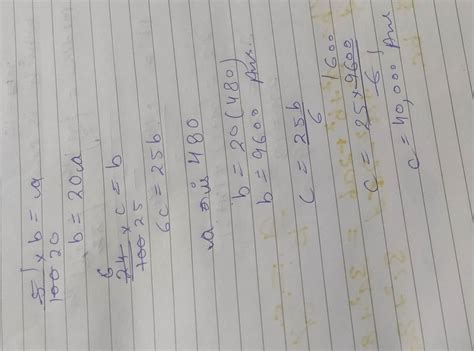 5/100 20 1 × b = a
b = 20a
6 24/100 25 × c = b
6c = 25b
a is 480
b = 20(480)
b = 9600 Ans.
c = 25b/6
c = 25 × 9600/6 1600 1
c = 40,000 Ans